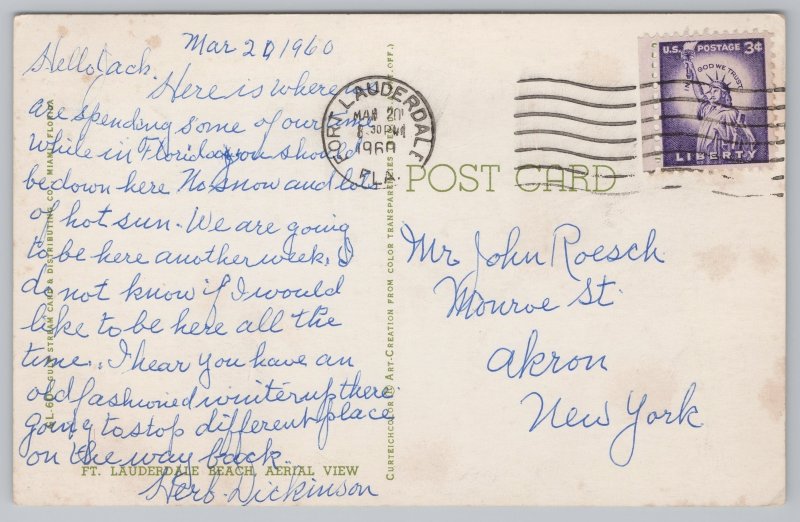 Mar 20, 1960
Hello Jack.
Here is where we
are spending some of our time
while in Florida you should
be down here No snow and lots
of hot sun. We are going
to be here another week. I
do not know if I would
like to be here all the
time. I hear you have an
old fashioned winter up there.
Going to stop different place
on the way back.
Herb. Dickinson
FT. LAUDERDALE BEACH, AERIAL VIEW
GULF STREAM CARD & DISTRIBUTING CO., MIAMI, FLORIDA
CURTEICHCOLOR ® ART-CREATION FROM COLOR TRANSPARENCIES
OFF.)
FORT LAUDERDALE
MAR 20
30 PM
1960
FLA.
U.S. POSTAGE 3¢
IN GOD WE TRUST
LIBERTY
POST CARD
Mr John Roesch
Monroe St.
Akron
New York